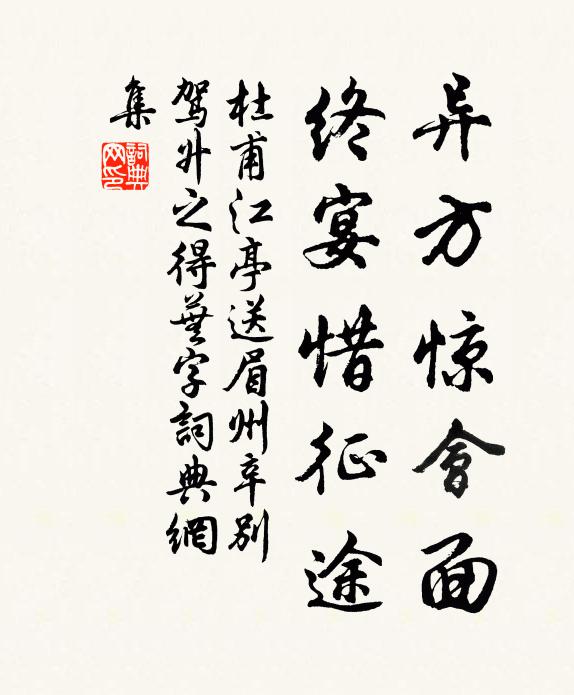 异方惊會面
终宴惜征途
杜甫江亭送眉州辛别
驾升之得蕪字詞典網
集
詞典
网印